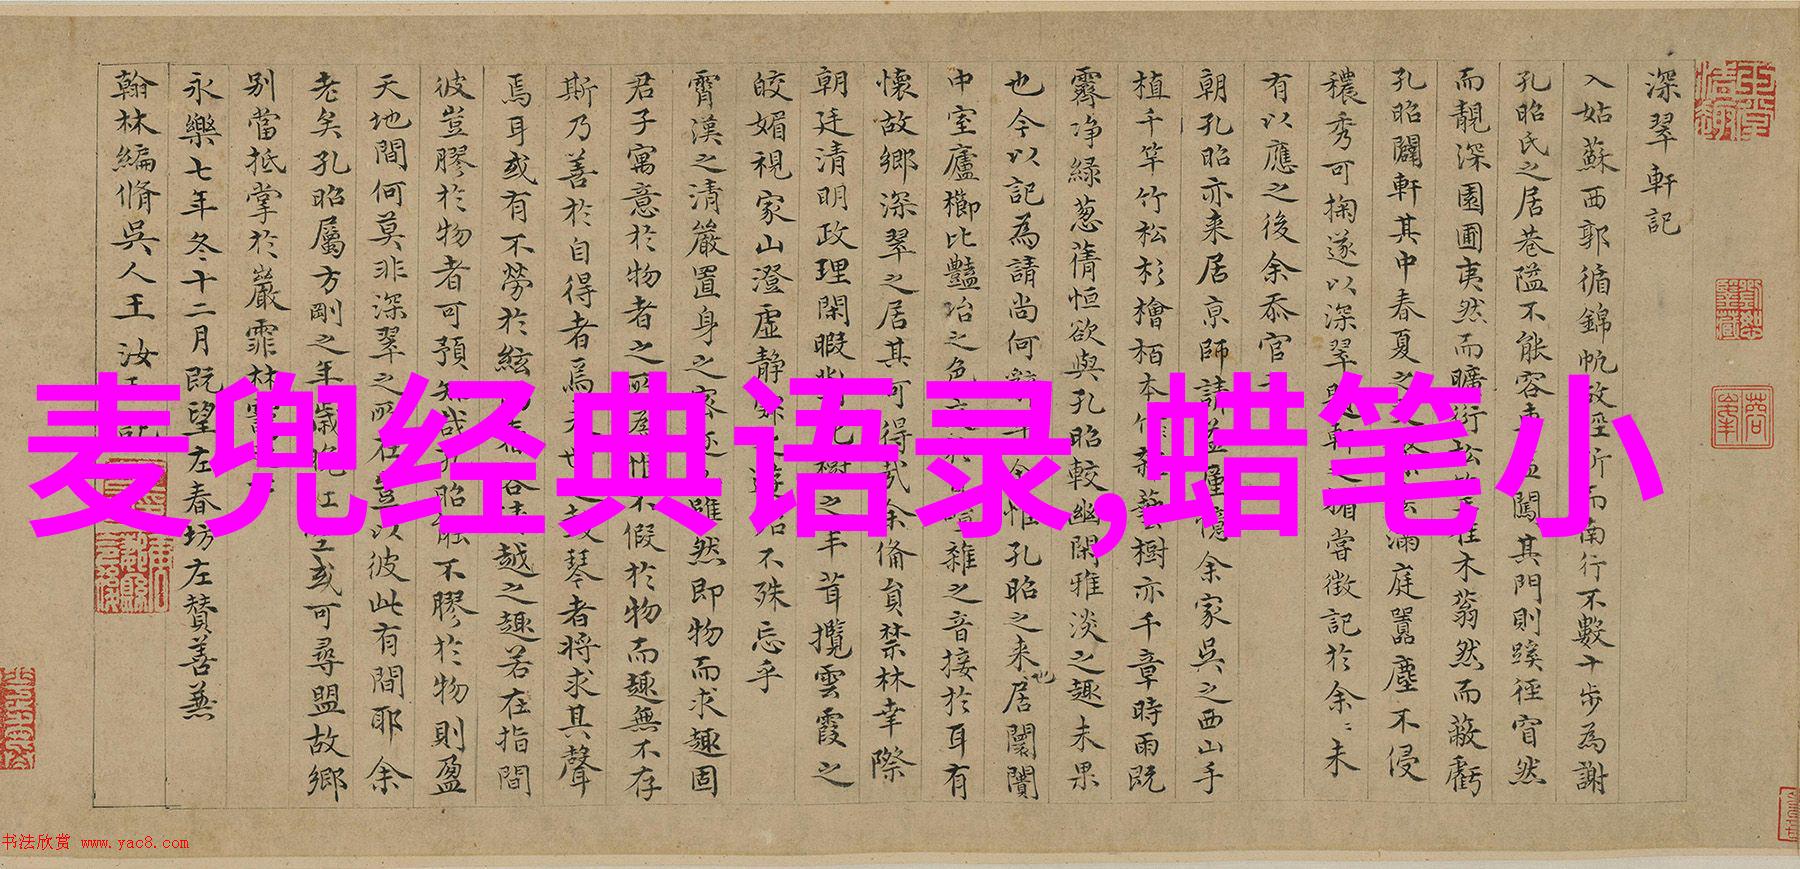 深翠軒記
入姑蘇西郭循錦帆故陘折而南行不數十步為謝
孔昭氏之居巷隘不能容闖其門則蹊徑窅然
而靚深園圃夷然而曠衍松木蓊然而蔽虧
孔昭闢軒其中春夏之滿庭囂塵不侵
穠秀可掬遂以深翠軒嘗徵記於余〻未
有以應之後余忝官
朝孔昭亦来居京師請益憶余家吳之西山手
植千竿竹松杉檜栢本樹亦千章時雨既
霽净緑葱蒨恒欲與孔昭較幽閑雅淡之趣未果
也今以記為請尚何余惟孔昭之来居闤闠
中室廬櫛比豔冶之色雜之音接於耳有
懷故鄉深翠之居其可得哉余備貟禁林幸際
朝廷清明政理閑暇樹之茸攬雲霞之
皎媚視家山澄虛静不殊忘乎
霄漢之清嚴置身之雖然即物而求趣固
君子寓意於物者之所為不假於物而趣無不存
斯乃善於自得者焉琴者将求其聲
焉耳或有不勞於絃越之趣若在指間
彼豈膠於物者可預知哉昭能不膠於物則盈
天地間何莫非深翠之所在豈以彼此有間耶余
老矣孔昭屬方剛之年歲晚或可尋盟故鄉
别當抵掌於巖霏林
永樂七年冬十二月既望左春坊左贊善兼
翰林編脩吳人王汝玉記
麦兜经典语录,蜡笔小
书法欣赏 www.yac8.com